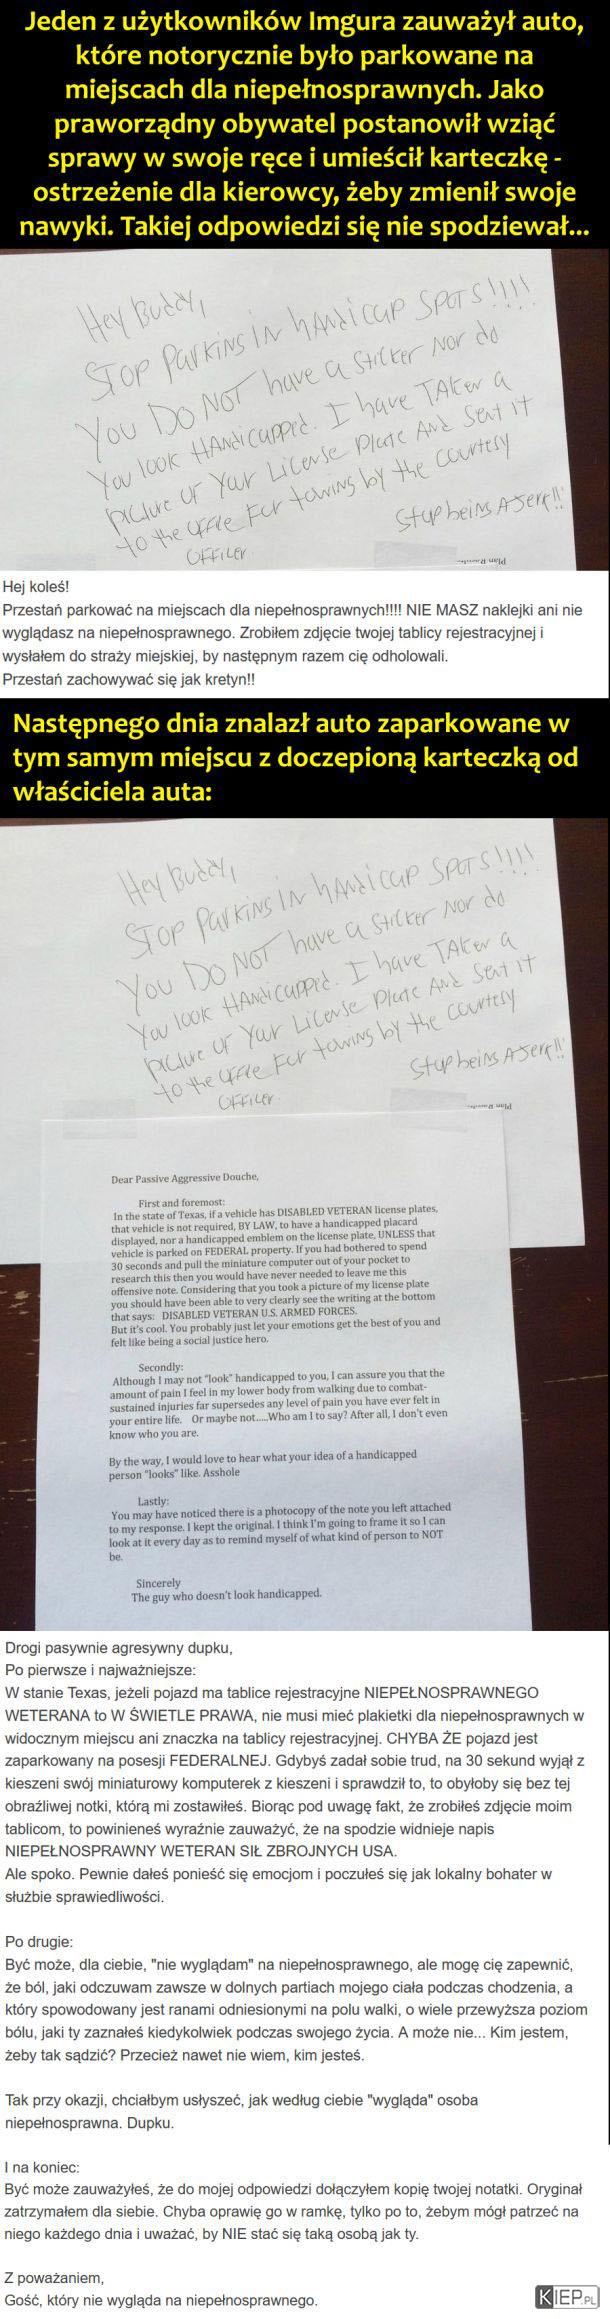 Jeden z użytkowników Imgura zauważył auto,
które notorycznie było parkowane na
miejscach dla niepełnosprawnych. Jako
praworządny obywatel postanowił wziąć
sprawy w swoje ręce i umieścił karteczkę -
ostrzeżenie dla kierowcy, żeby zmienił swoje
nawyki. Takiej odpowiedzi się nie spodziewał...
Hey Buddy,
STOP Parking in hANdicap SPOTS!!!!
You DO NOT have a Sticker Nor do
You look HANdicapped. I have TAKen a
picture of Your License Plate And Sent it
to the office For towing by the courtesy
OFFicer.
Stop being A Jerk!!
Hej koleś!
Przestań parkować na miejscach dla niepełnosprawnych!!!! NIE MASZ naklejki ani nie
wyglądasz na niepełnosprawnego. Zrobiłem zdjęcie twojej tablicy rejestracyjnej i
wysłałem do straży miejskiej, by następnym razem cię odholowali.
Przestań zachowywać się jak kretyn!!
Następnego dnia znalazł auto zaparkowane w
tym samym miejscu z doczepioną karteczką od
właściciela auta:
Hey Buddy,
STOP Parking in hANdicap SPOTS!!!!
You DO NOT have a Sticker Nor do
You look HANdicapped. I have TAKen a
picture of Your License Plate And Sent it
to the office For towing by the courtesy
OFFicer.
Stop being A Jerk!!
Dear Passive Aggressive Douche,
First and foremost:
In the state of Texas, if a vehicle has DISABLED VETERAN license plates,
that vehicle is not required, BY LAW, to have a handicapped placard
displayed, nor a handicapped emblem on the license plate, UNLESS that
vehicle is parked on FEDERAL property. If you had bothered to spend
30 seconds and pull the miniature computer out of your pocket to
research this then you would have never needed to leave me this
offensive note. Considering that you took a picture of my license plate
you should have been able to very clearly see the writing at the bottom
that says: DISABLED VETERAN U.S. ARMED FORCES.
But it's cool. You probably just let your emotions get the best of you and
felt like being a social justice hero.
Secondly:
Although I may not "look" handicapped to you, I can assure you that the
amount of pain I feel in my lower body from walking due to combat-
sustained injuries far supersedes any level of pain you have ever felt in
your entire life. Or maybe not.....Who am I to say? After all, I don't even
know who you are.
By the way, I would love to hear what your idea of a handicapped
person "looks" like. Asshole
Lastly:
You may have noticed there is a photocopy of the note you left attached
to my response. I kept the original. I think I'm going to frame it so I can
look at it every day as to remind myself of what kind of person to NOT
be.
Sincerely
The guy who doesn't look handicapped.
Drogi pasywnie agresywny dupku,
Po pierwsze i najważniejsze:
W stanie Texas, jeżeli pojazd ma tablice rejestracyjne NIEPEŁNOSPRAWNEGO
WETERANA to W ŚWIETLE PRAWA, nie musi mieć plakietki dla niepełnosprawnych w
widocznym miejscu ani znaczka na tablicy rejestracyjnej. CHYBA ŻE pojazd jest
zaparkowany na posesji FEDERALNEJ. Gdybyś zadał sobie trud, na 30 sekund wyjął z
kieszeni swój miniaturowy komputerek z kieszeni i sprawdził to, to obyłoby się bez tej
obraźliwej notki, którą mi zostawiłeś. Biorąc pod uwagę fakt, że zrobiłeś zdjęcie moim
tablicom, to powinieneś wyraźnie zauważyć, że na spodzie widnieje napis
NIEPEŁNOSPRAWNY WETERAN SIŁ ZBROJNYCH USA.
Ale spoko. Pewnie dałeś ponieść się emocjom i poczułeś się jak lokalny bohater w
służbie sprawiedliwości.
Po drugie:
Być może, dla ciebie, "nie wyglądam" na niepełnosprawnego, ale mogę cię zapewnić,
że ból, jaki odczuwam zawsze w dolnych partiach mojego ciała podczas chodzenia, a
który spowodowany jest ranami odniesionymi na polu walki, o wiele przewyższa poziom
bólu, jaki ty zaznałeś kiedykolwiek podczas swojego życia. A może nie... Kim jestem,
żeby tak sądzić? Przecież nawet nie wiem, kim jesteś.
Tak przy okazji, chciałbym usłyszeć, jak według ciebie "wygląda" osoba
niepełnosprawna. Dupku.
I na koniec:
Być może zauważyłeś, że do mojej odpowiedzi dołączyłem kopię twojej notatki. Oryginał
zatrzymałem dla siebie. Chyba oprawię go w ramkę, tylko po to, żebym mógł patrzeć na
niego każdego dnia i uważać, by NIE stać się taką osobą jak ty.
Z poważaniem,
Gość, który nie wygląda na niepełnosprawnego.
KIEP.PL